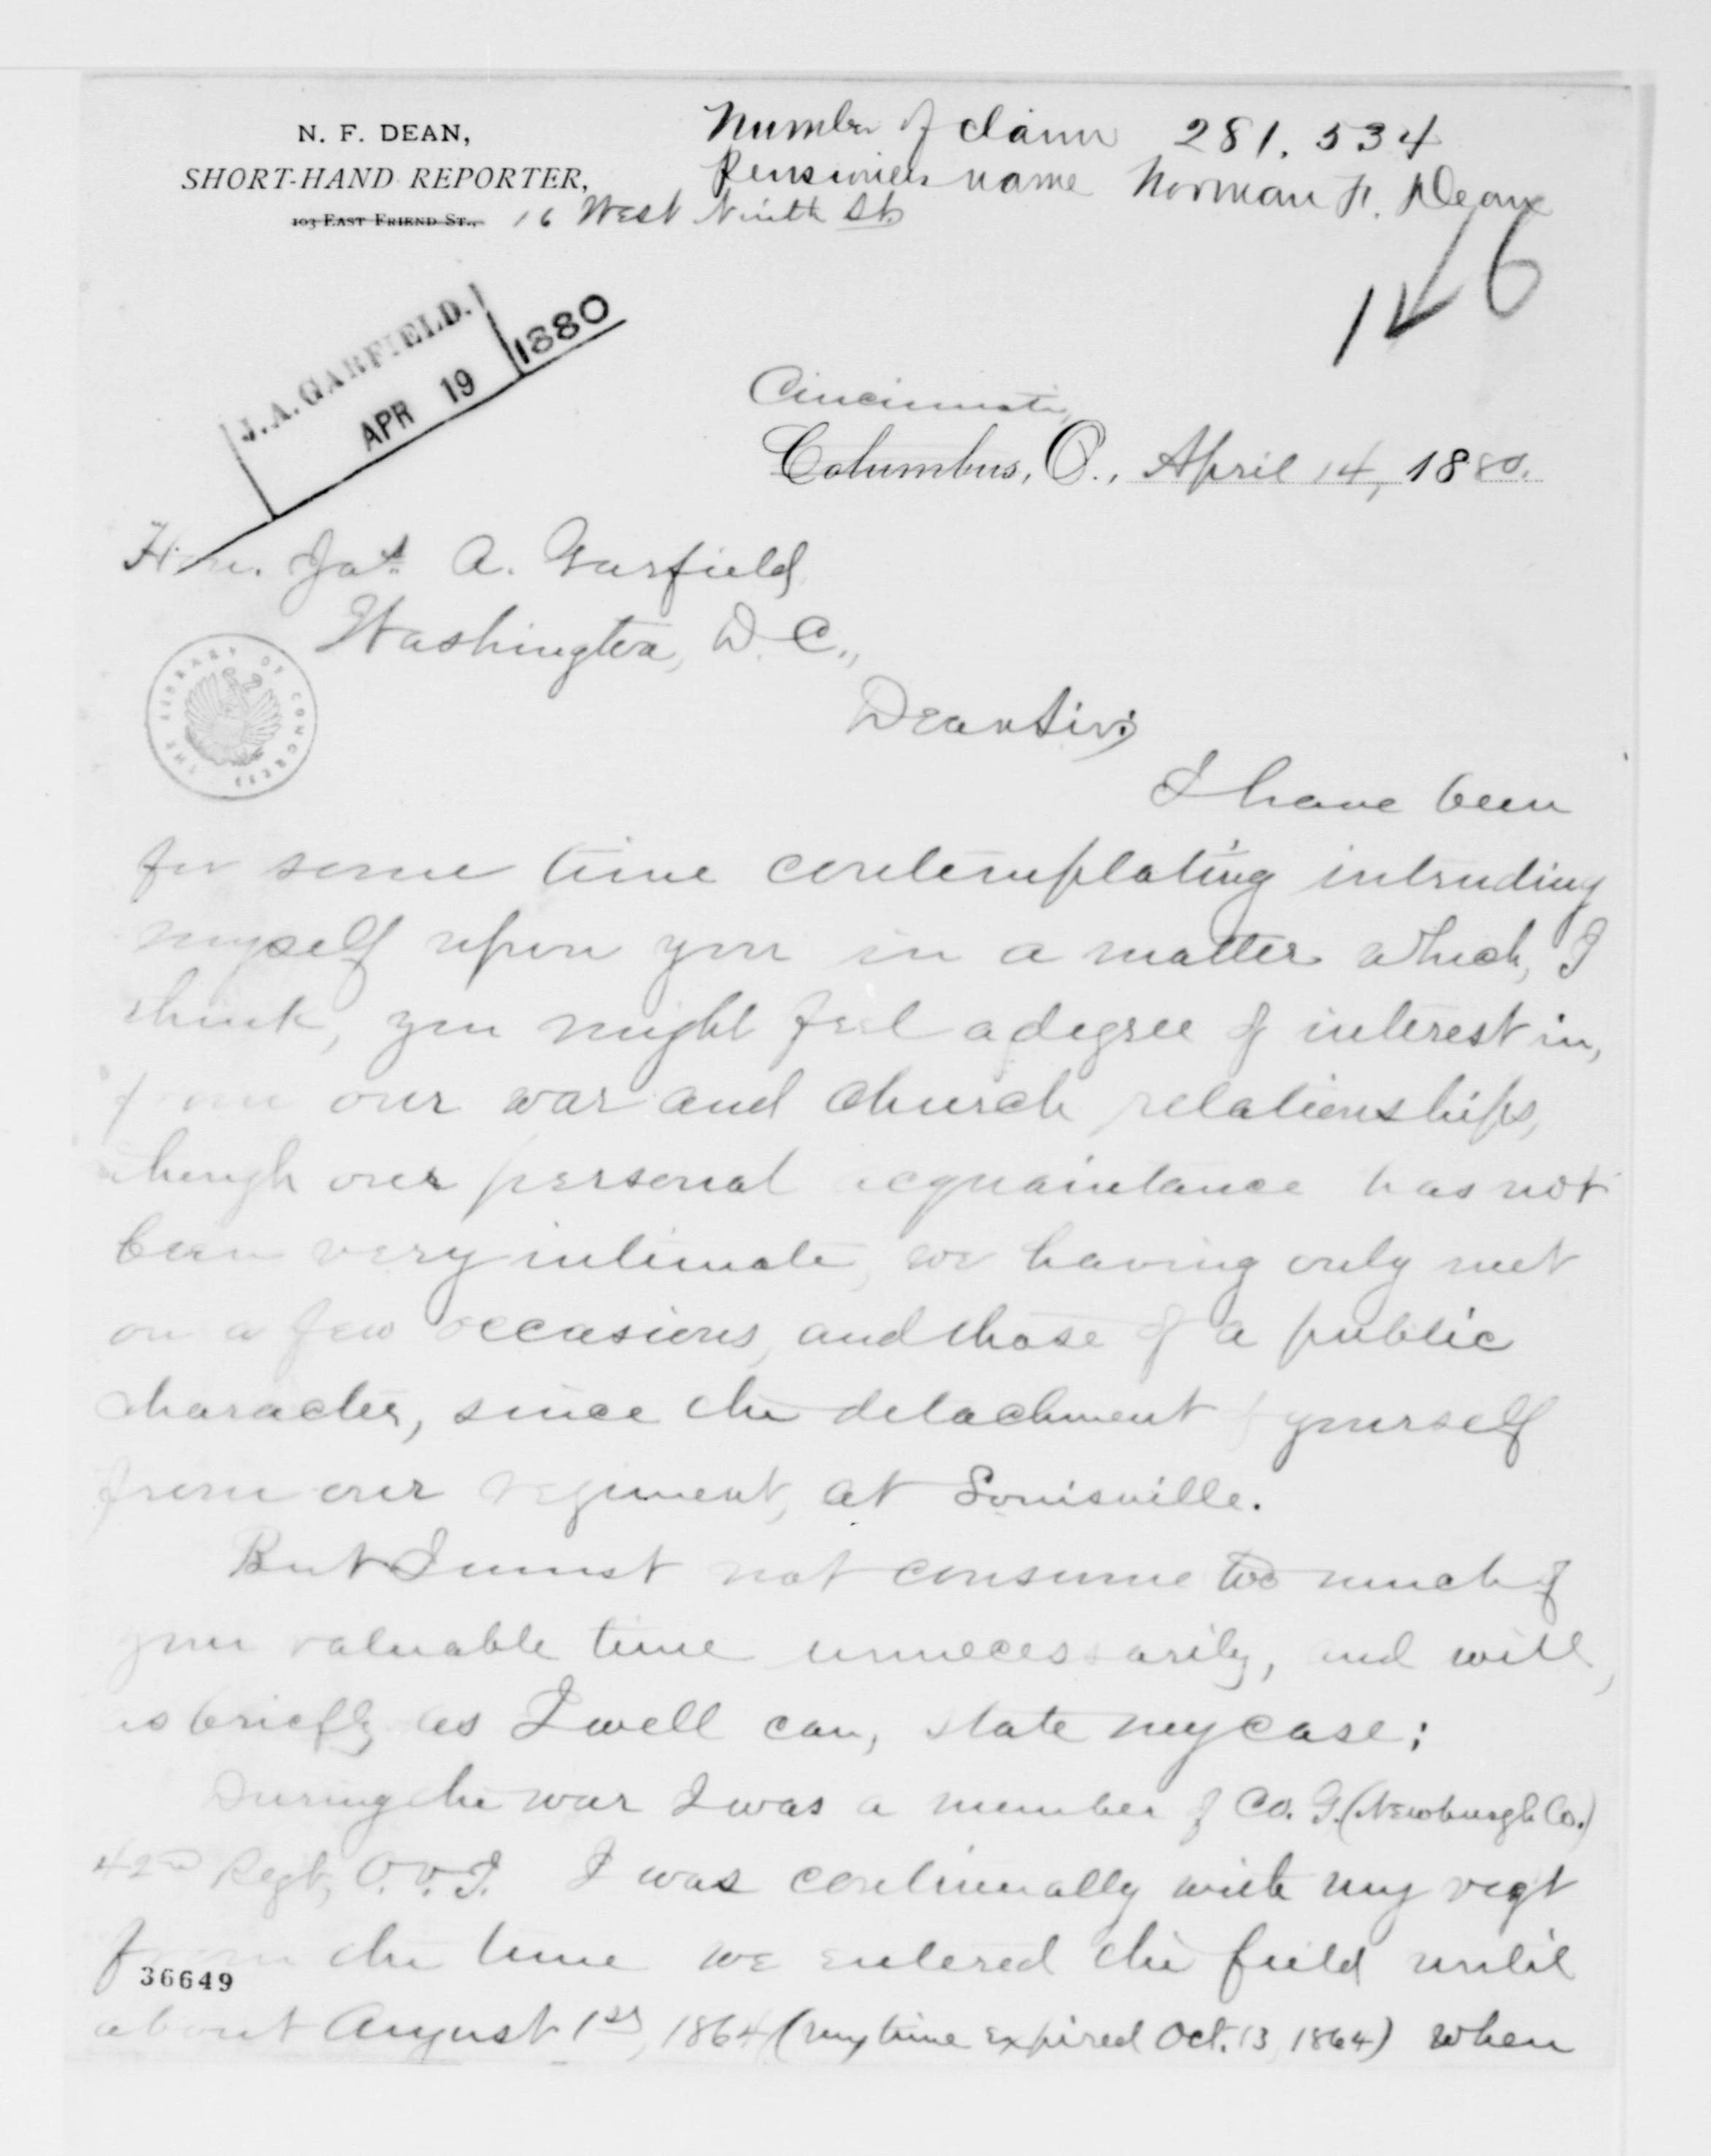 N. F. DEAN,
SHORT-HAND REPORTER,
103 EAST FRIEND ST., 16 West Ninth St.
Number of claim 281.534
Pensioners name Norman F. Dean
J. A. GARFIELD.
APR 19 1880
Cincinnati,
Columbus, O., April 14, 1880.
Hon. Jas. A. Garfield,
Washington, D. C.,
THE LIBRARY OF CONGRESS
Dear Sir:
I have been
for some time contemplating intruding
myself upon you in a matter which, I
think, you might feel a degree of interest in,
from our war and church relationships,
though our personal acquaintance has not
been very intimate, we having only met
on a few occasions, and those of a public
character, since the detachment of yourself
from our regiment, at Louisville.
But I must not consume too much of
your valuable time unnecessarily, and will,
as briefly as I well can, state my case:
During the war I was a member of Co. G. (Newburgh Co.)
42nd Regt, O.V.I. I was continually with my regt
from the time we entered the field until
36649
about August 1st, 1864 (my time expired Oct. 13, 1864) when